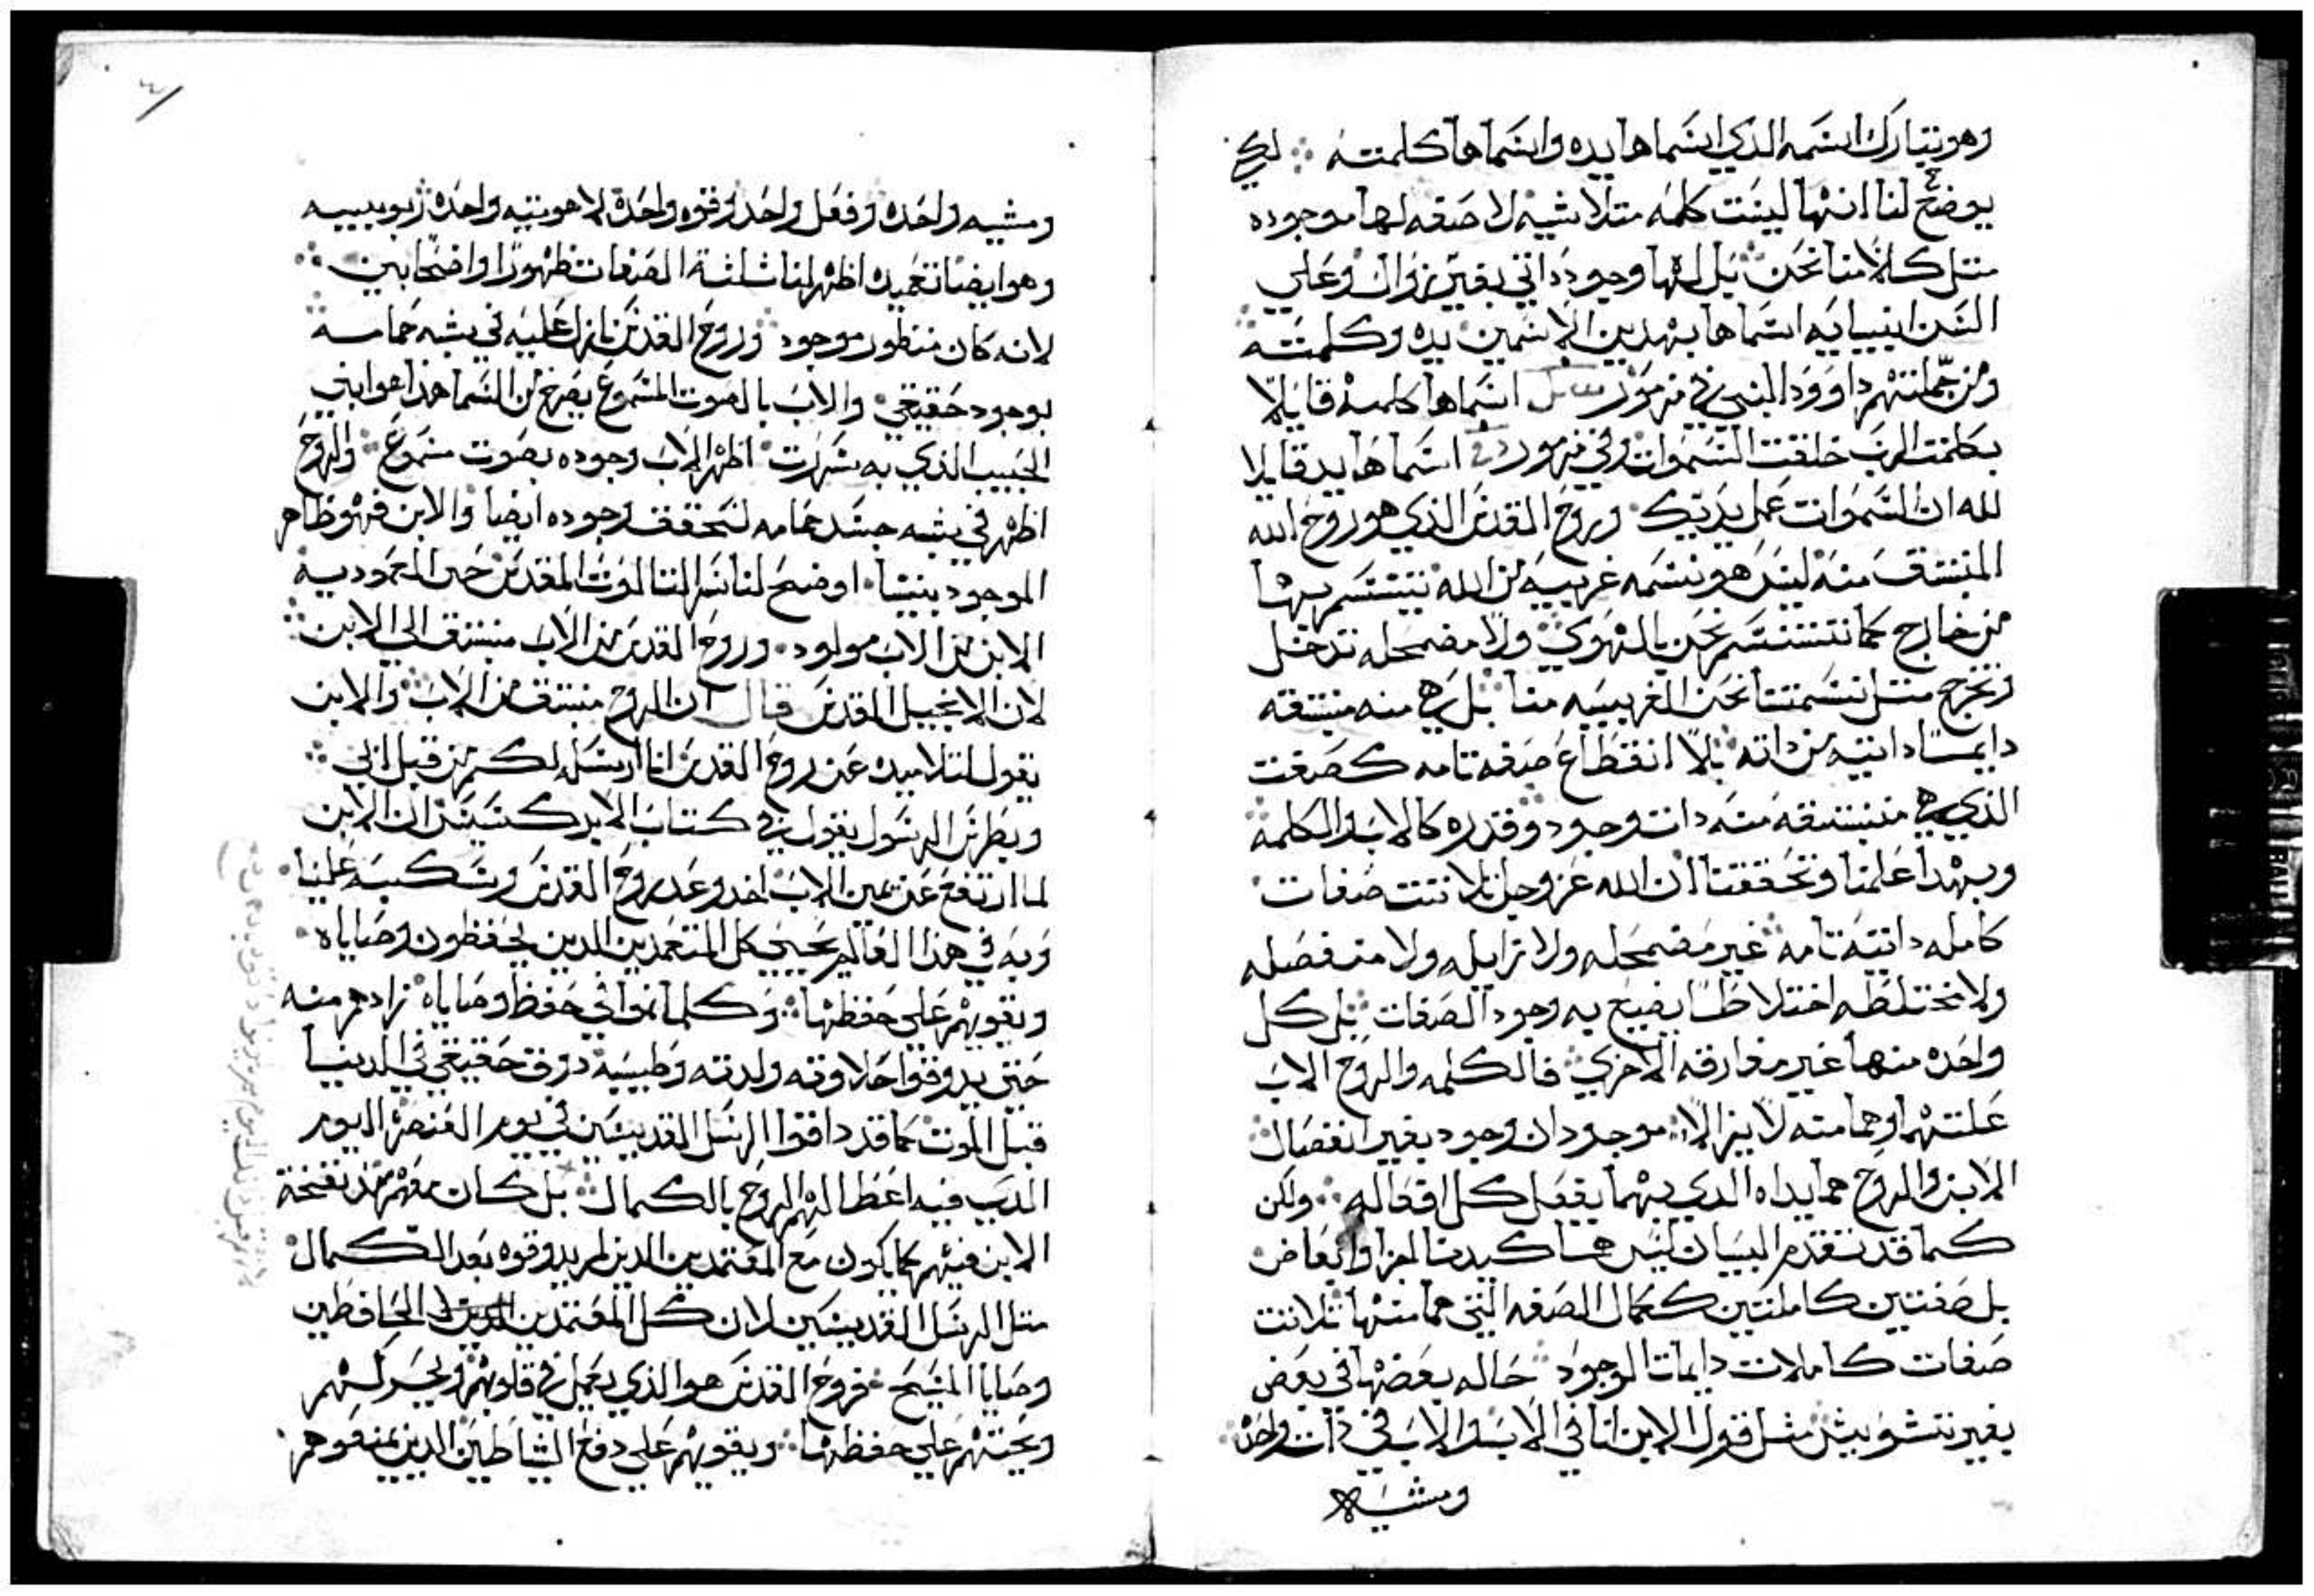 وهو يتبارك اسمه الدي اسماها يده واسماها كلمته لكي
يوضح لنا انها ليست كلمه متلاشيه لا صفه لها موجوده
متل كلامنا نحن بل لها وجود داتي بغير زوال وعلي
السن انبيايه اسماها بهدين الاسمين يده وكلمته
ومن جملتهم داوود النبي في مزمور اسماها كلمه قايلا
بكلمت الرب خلقت السموات وفي مزمور اسماها يد قايلا
لله ان السموات عمل يديك وروح القدس الذي هو روح الله
المنبتق منه ليس هو نسمه غريبه من الله نتنسم بها
من خارج كما نتنسم نحن بالهوي ولا مضمحله تدخل
وتخرج متل نسمتنا نحن الغريبه منا بل هي منه منبتقه
دايما داتيه من داته بلا انقطاع صفه تامه كصفت
الذي هي منبتقه منه دات وجود وقدره كالاب والكلمه
وبهدا علمنا وتحققنا ان الله عز وجل تلاتت صفات
كامله داتيه تامه غير مضمحله ولا زايله ولا منفصله
ولا مختلطه اختلاطا يضيع به وجود الصفات بل كل
واحده منها غير مفارقه الاخري فالكلمه والروح الاب
علتهما وهما منه لا يزالا موجودان وجود بغير انفصال
الابن والروح هما يداه الدي بهما يفعل كل افعاله ولكن
كما قد تقدم البيان ليس هما كيدينا اجزا وابعاض
بل صفتين كاملتين ككمال الصفه التي هما منها تلاتت
صفات كاملات دايمات الوجود حاله بعضها في بعض
بغير تشويش متل قول الابن انا في الاب والاب في دات واحده
ومشيه
ومشيه واحده وفعل واحد وقوه واحده لاهوتيه واحده ربوبيه
وهو ايضا بتعميده اظهر لنا ثلثة الصفات ظهورا واضحا بين
لانه كان منظور موجود وروح القدس نازل عليه في شبه حمامه
بوجود حقيقي والاب بالصوت المسموع يصرخ من السما هذا هو ابني
الحبيب الذي به سررت اظهر الاب وجوده بصوت مسموع والروح
اظهر في شبه جسد حمامه لنحقق وجوده ايضا والابن فهو ظاهر
الموجود بيننا اوضح لنا سر التالوت المقدس حين المعموديه
الابن من الاب مولود وروح القدس من الاب منبتق الي الابن
لان الانجيل المقدس قال ان الروح منبتق من الاب والابن
يقول لتلاميده عن روح القدس انا ارسله لكم من قبل ابي
وبطرس الرسول يقول في كتاب الابركسيس ان الابن
لما ارتفع عن يمين الاب اخد وعد روح القدس وسكبه علينا
وبه في هذا العالم يحيي كل المتعمدين الدين يحفظون وصاياه
ويقويهم علي حفظها وكلما نموا في حفظ وصاياه زادهم منه
حتي يدوقوا حلاوته ولدته وطيبه دوق حقيقي في الدنيا
قبل الموت كما قد داقوا الرسل القديسين في يوم العنصره اليوم
الدي فيه اعطا لهم الروح بالكمال بل كان معهم مند نفخة
الابن فيهم كما يكون مع المعتمدين الدين لم يدوقوه بعد الكمال
متل الرسل القديسين لان كل المعتمدين الحافظين
وصايا المسيح فروح القدس هو الذي يعمل في قلوبهم ويحركهم
ويحتهم علي حفظها ويقويهم علي دفع الشياطين الدين يمنعوهم